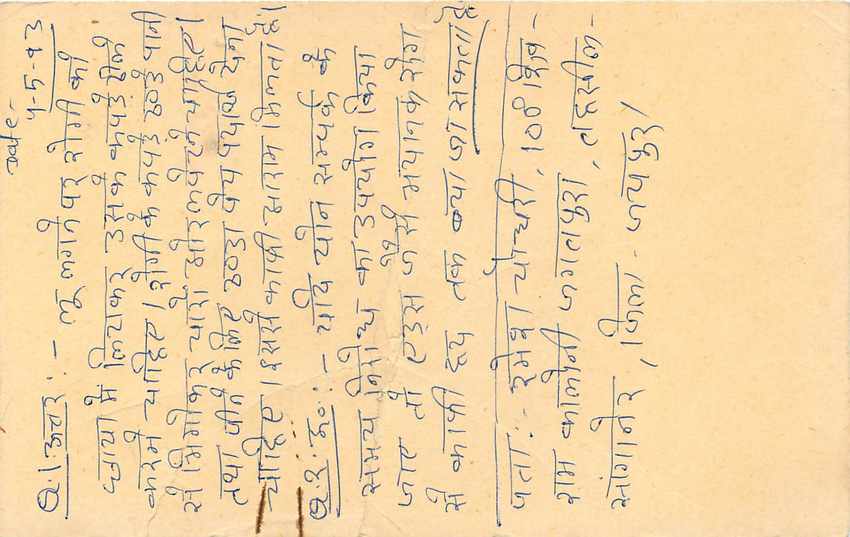 Date-
7-5-93
Q.1 उत्तर :- लू लगने पर रोगी को
छाया में लिटाकर उसके कपड़े ढीले
करने चाहिए। रोगी के कपड़े ठण्डे पानी
से भिगोकर चारों ओर लपेटने चाहिए।
तथा पीने के लिए ठण्डा पेय पदार्थ देना
चाहिए। इससे काफी आराम मिलता है।
Q.2. उ॰ :- यदि यौन सम्पर्क के
समय निरोध का उपयोग किया
जाए तो एड्स जैसे भयानक रोग
से काफी हद तक बचा जा सकता है
पता :- रमेश चौधरी, 108 शिव-
राम कालोनी जगतपुरा, तहसील-
सांगानेर, जिला - जयपुर,